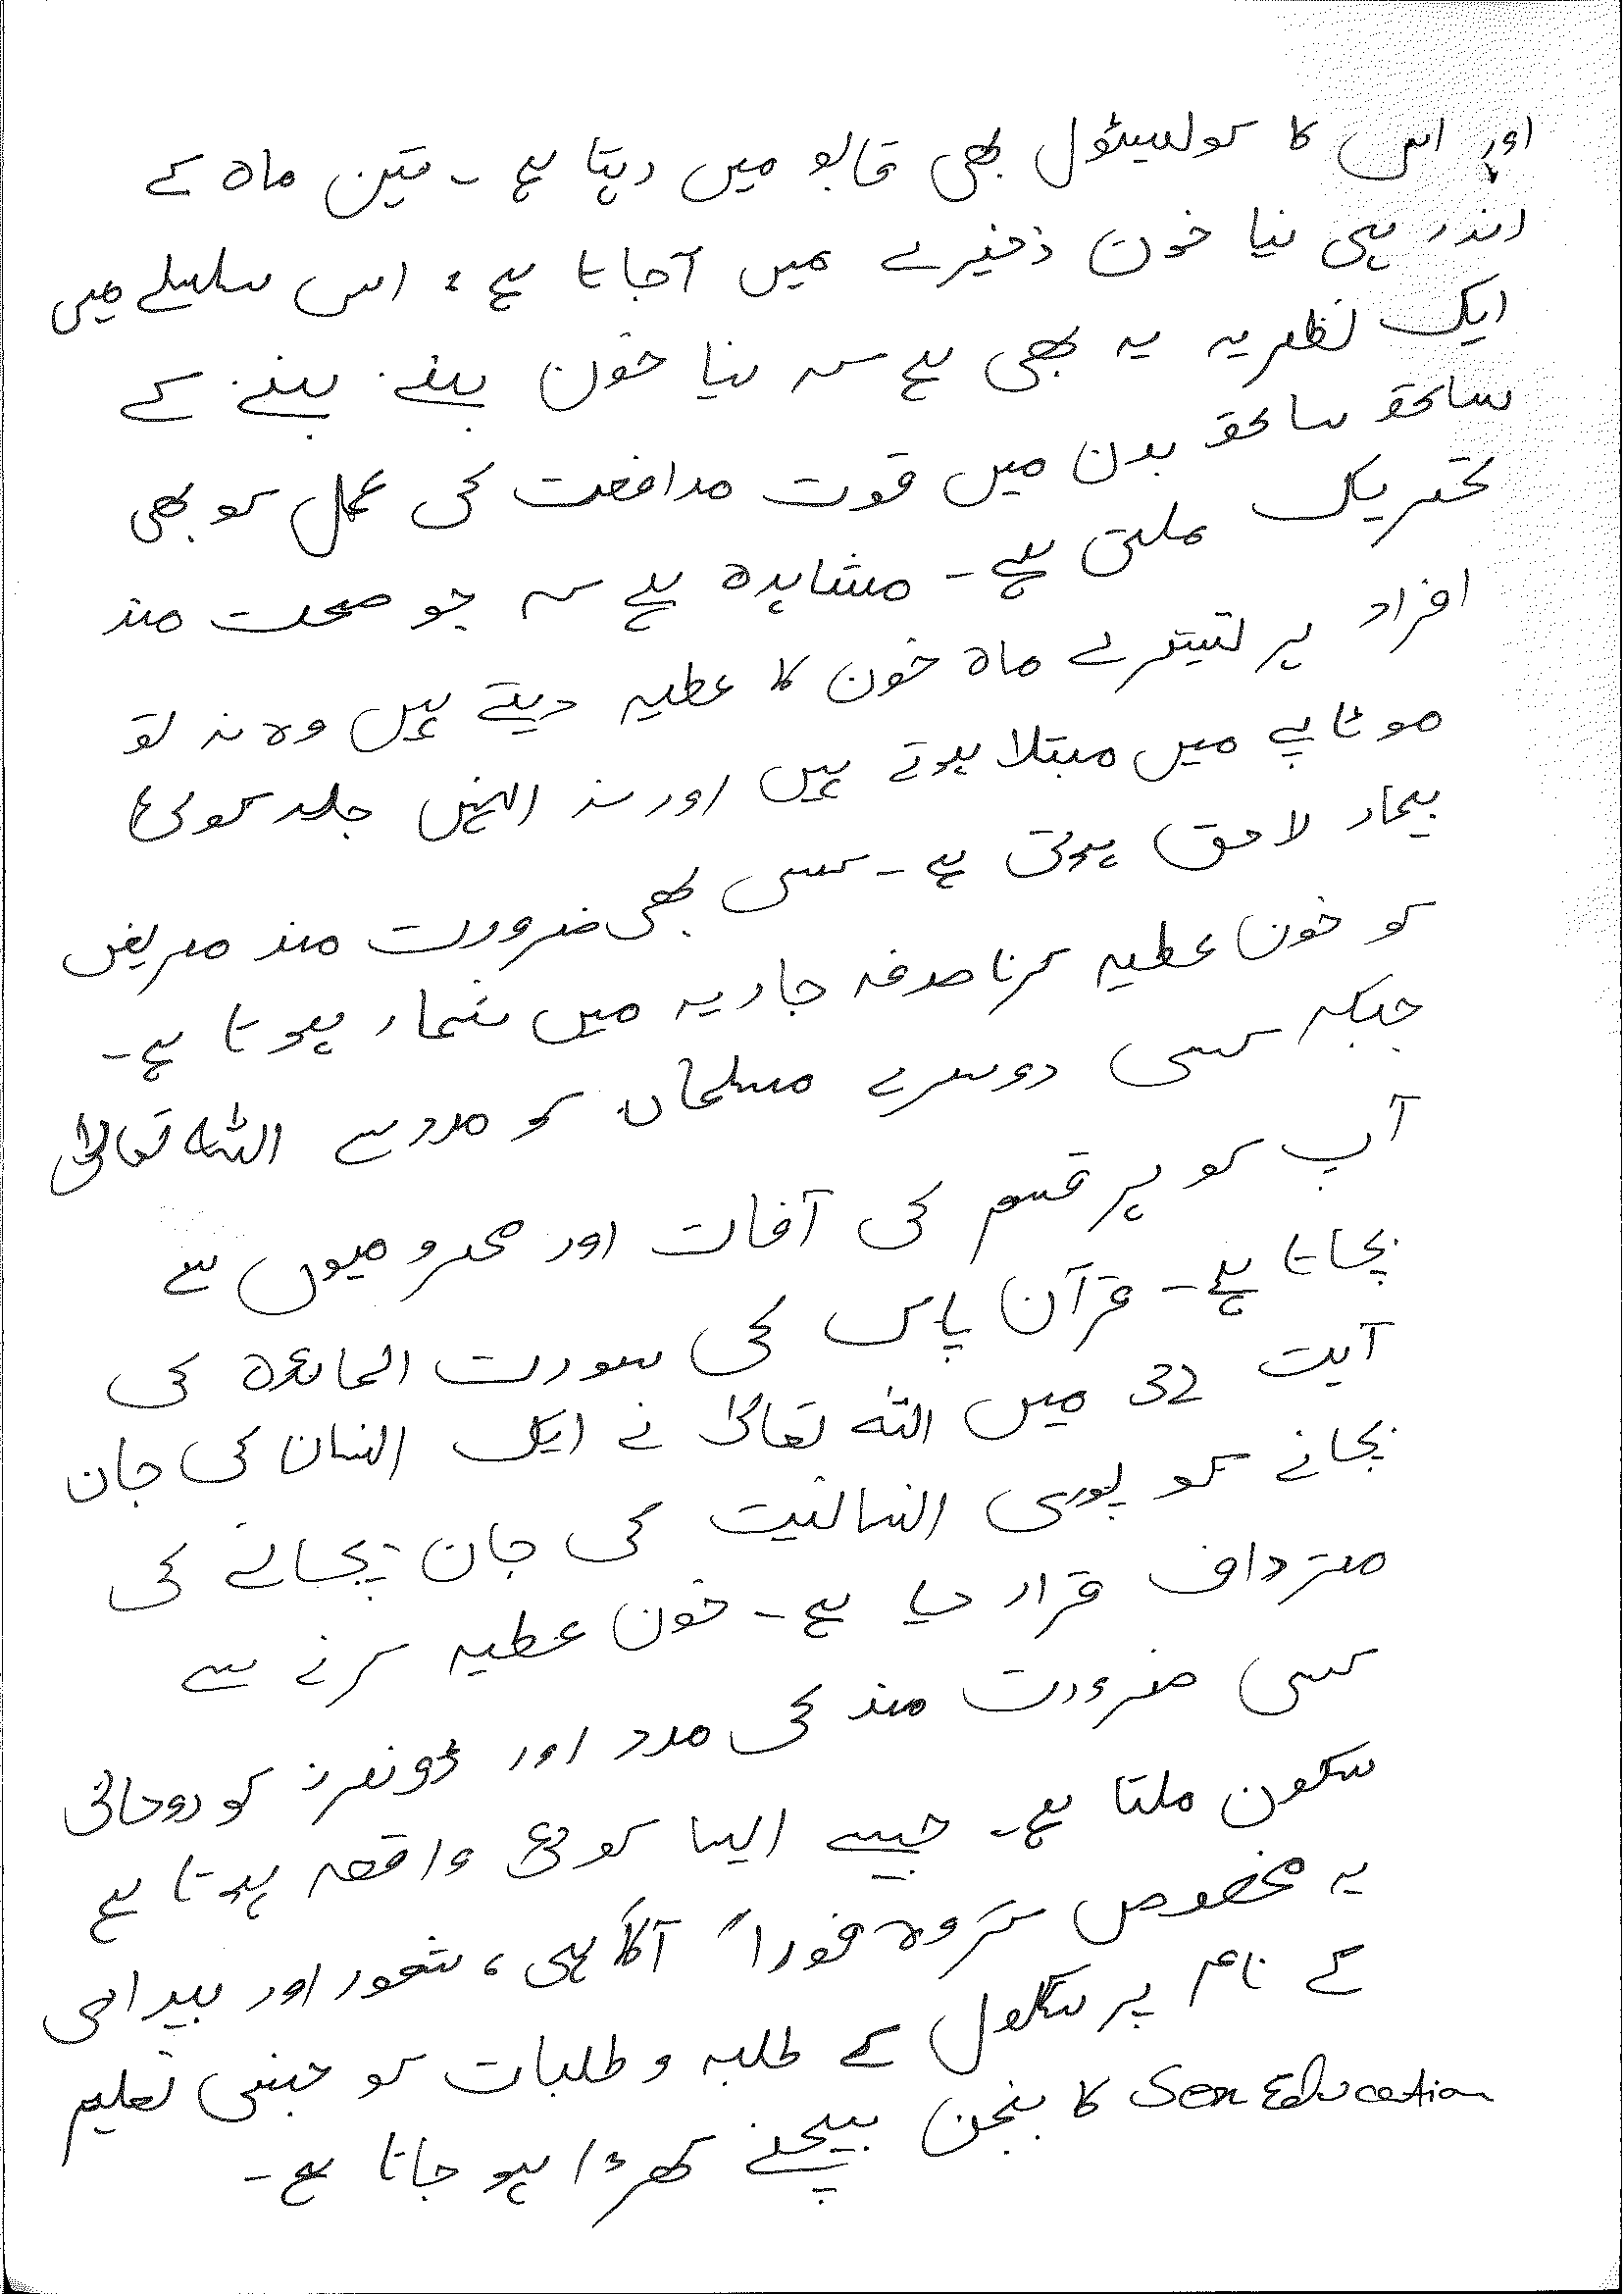 اور اس کا کولیسٹول بھی قابو میں رہتا ہے ۔ تین ماہ کے
اندر ہی نیا خون ذخیرے میں آجاتا ہے، اس سلسلے میں
ایک نظریہ یہ بھی ہے کہ نیا خون بننے بننے کے
ساتھ ساتھ بدن میں قوت مدافعت کی عمل کو بھی
تحریک ملتی ہے ۔ مشاہدہ ہے کہ جو صحت مند
افراد ہر تیسرے ماہ خون کا عطیہ دیتے ہیں وہ نہ تو
موٹاپے میں مبتلا ہوتے ہیں اور نہ انہیں جلد کوئی
بیمار لاحق ہوتی ہے ۔ کسی بھی ضرورت مند مریض
کو خون عطیہ کرنا صدقہ جاریہ میں شمار ہوتا ہے ۔
جبکہ کسی دوسرے مسلمان کو مدد سے اللہ تعالیٰ
آپ کو ہر قسم کی آفات اور محرومیوں سے
بچاتا ہے ۔ قرآن پاک کی سورت المائدہ کی
آیت 32 میں اللہ تعالیٰ نے ایک انسان کی جان
بچانے کو پوری انسانیت کی جان بچانے کی
مترداف قرار دیا ہے ۔ خون عطیہ کرنے سے
کسی ضرورت مند کی مدد اور ڈونرز کو روحانی
سکون ملتا ہے ۔ جیسے ایسا کوئی واقعہ ہوتا ہے
یہ مخصوص گروہ فوراً آگاہی، شعور اور بیداری
کے نام پر سکول کے طلبہ و طلبات کو جنسی تعلیم
Sex Education کا منجن بیچنے کھڑا ہو جاتا ہے ۔